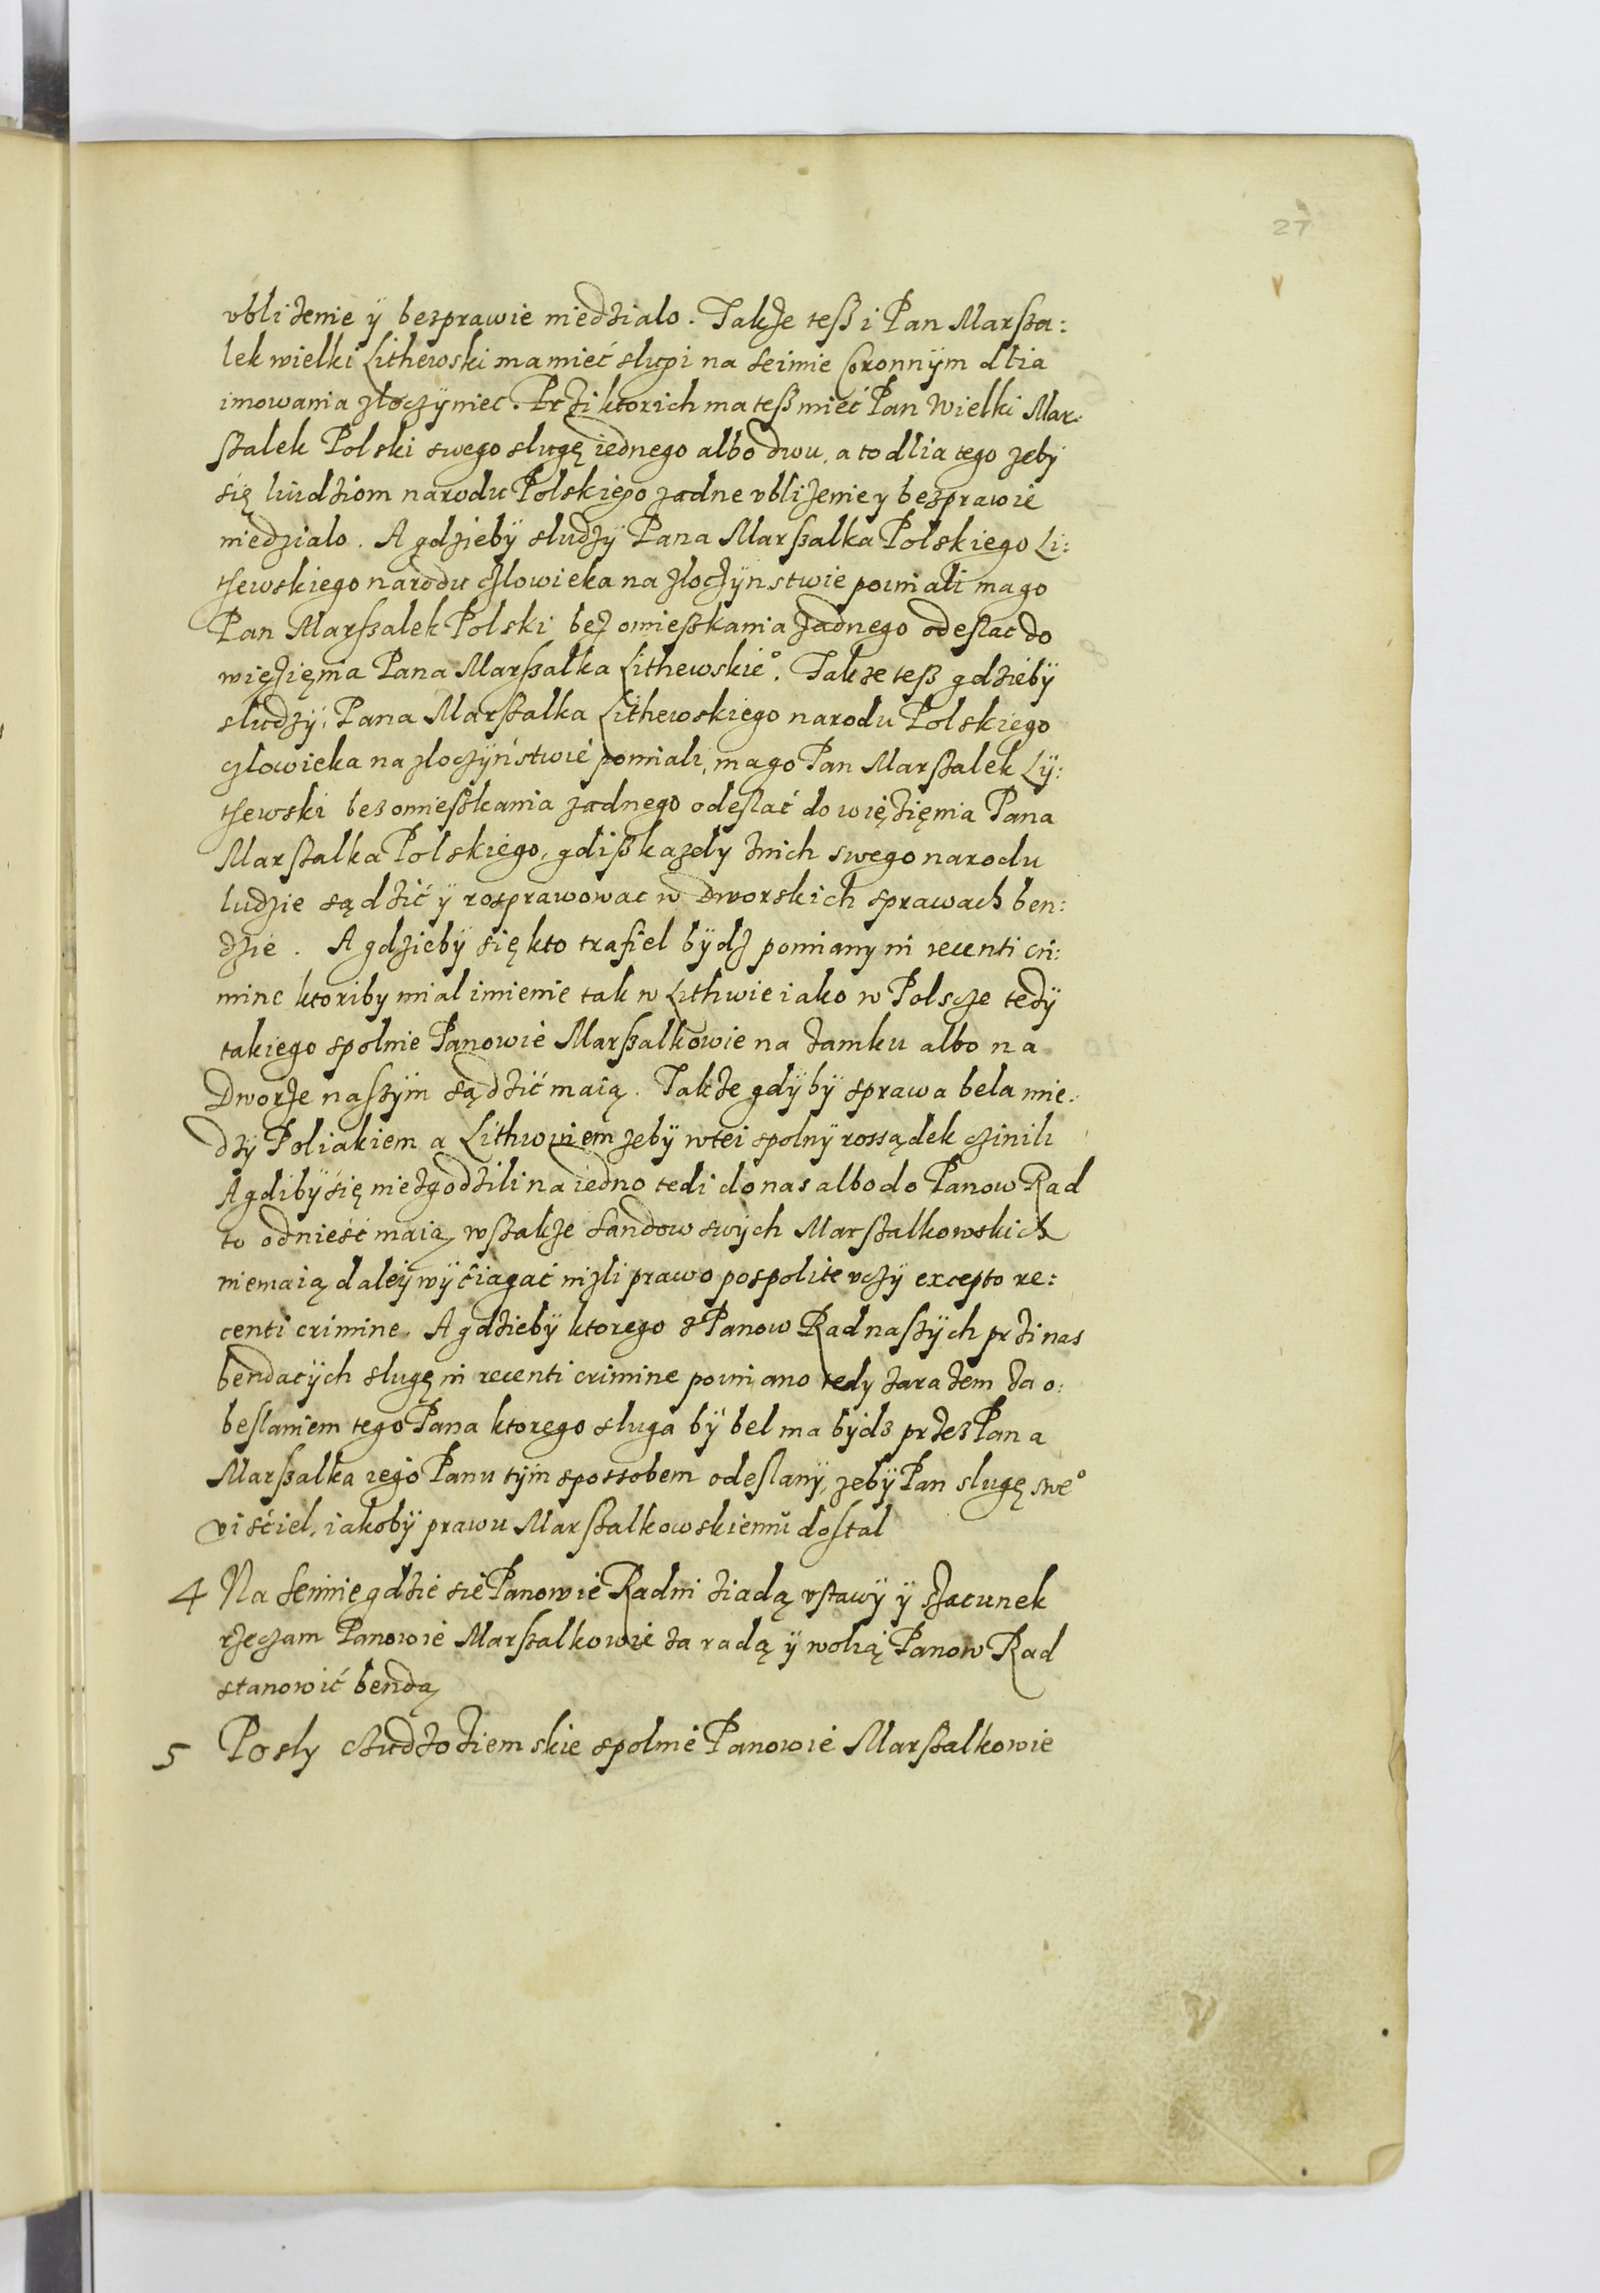 27
vbliżenie ÿ bezprawie niedzialo. Także teß i Pan Marßa:
lek wielki Lithewski ma mieć slugi na seimie Coronnÿm dlia
imowania zloczÿniec. Przi ktorich ma teß mieć Pan Wielki Mar:
ßalek Polski swego slugę iednego albo dwu, a to dlia tego zeby
się ludziom narodu Polskiego zadne vbliżenie y bezprawie
niedzialo. A gdzieby sludzÿ Pana Marßalka Polskiego Li:
thewskiego narodu czlowieka na zloczÿnstwie poimali ma go
Pan Marßalek Polski bez omießkania zadnego odeslac do
więzięnia Pana Marßalka Lithewskie°. Takze teß gdziebÿ
sludzÿ Pana Marßalka Lithewskiego narodu Polskiego
czlowieka na zloczÿństwie poimali, ma go Pan Marßalek Lÿ:
thewski bez omießkania zadnego odeslać do więzięnia Pana
Marßalka Polskiego, gdiß kazdy znich swego narodu
ludzie sądzić ÿ rosprawowac w Dworskich sprawach ben:
dzie. A gdziebÿ się kto trafiel bÿdz poimany in recenti cri:
mine ktoriby mial imienie tak w Lithwie iako w Polscze tedÿ
takiego spolnie Panowie Marßalkowie na zamku albo na
Dworze naszÿm sądzić maią. Takze gdÿbÿ sprawa bela mie:
dzÿ Poliakiem a Lithwinem zebÿ wtei spolnÿ rossądek czinili
A gdibÿ się niezgodzili na iedno tedi do nas albo do Panow Rad
to odnieść maią, wßakże sandow swÿch Marßalkowskich
niemaią daleÿ wÿciagać nizli prawo pospolite vczÿ excepto re:
centi crimine. A gdziebÿ ktorego z Panow Rad naszÿch przi nas
bendacÿch slugę in recenti crimine poimano tedy zarazem za o:
beslaniem tego Pana ktorego sluga bÿ bel ma bÿdz przez Pana
Marßalka iego Panu tÿm spossobem odeslanÿ, zebÿ Pan slugę swe°
viściel, iakobÿ prawu Marßalkowskiemu dostal
4 Na Seimie gdzie sie Panowie Radni ziadą vstawÿ ÿ szacunek
rzeczam Panowie Marßalkowie za radą ÿ wolią Panow Rad
stanowić bendą
5 Posly czudzoziemskie spolnie Panowie Marßalkowie